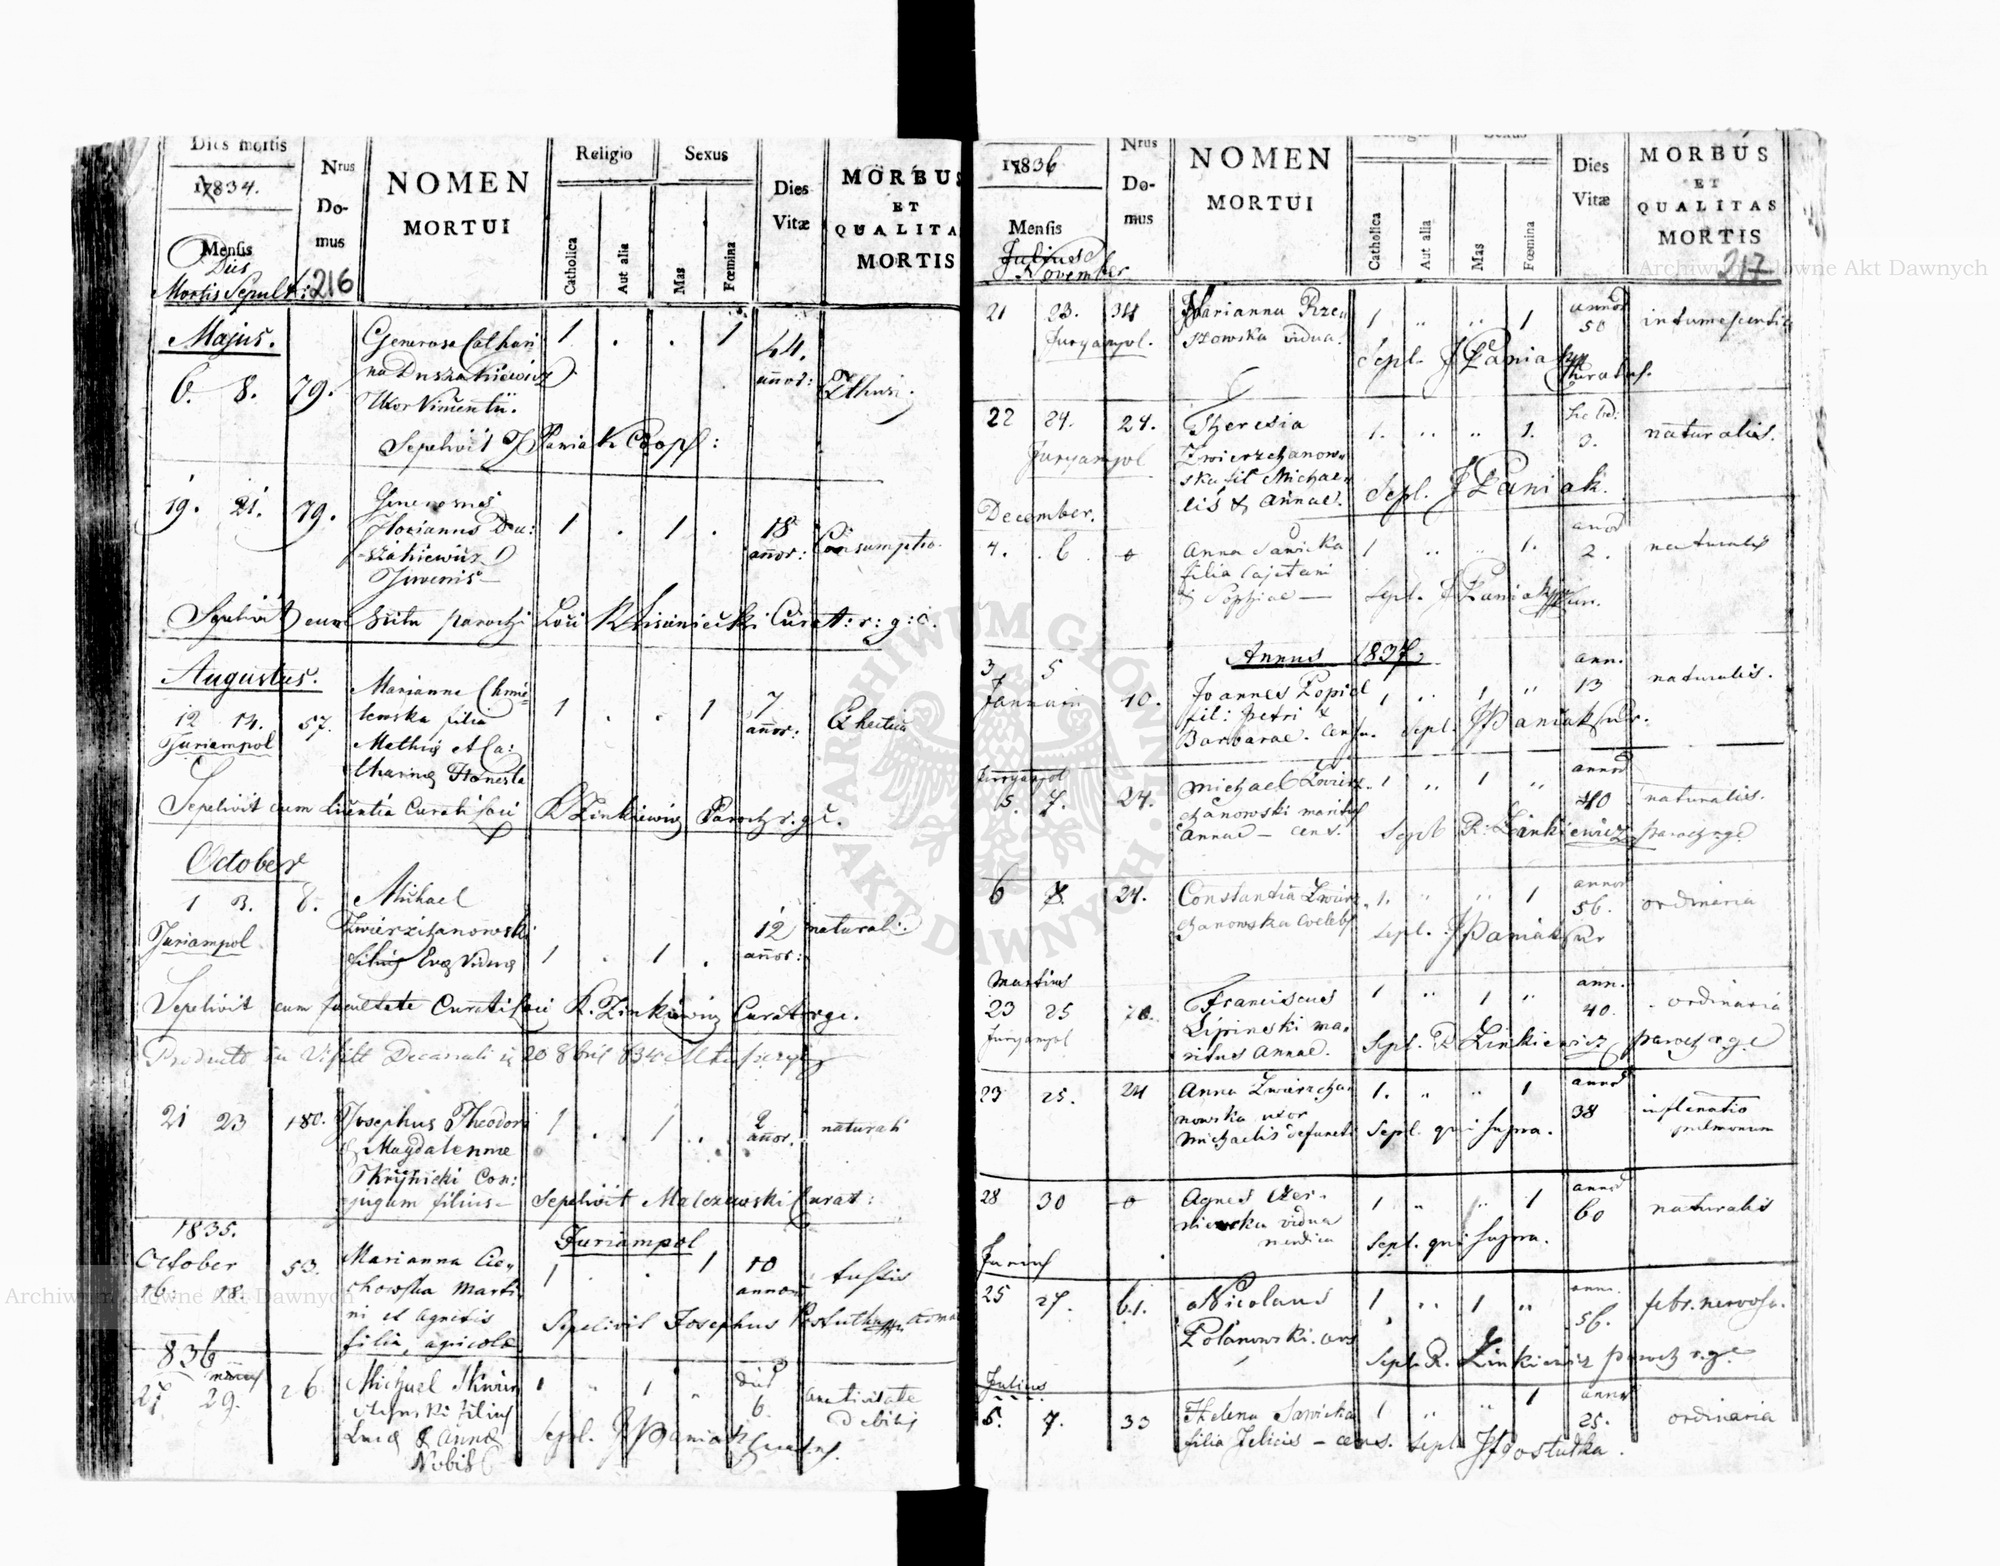 Dies mortis
Nrus
Do-
mus
NOMEN
MORTUI
Religio
Sexus
Catholica
Aut alia
Mas
Fœmina
Dies
Vitæ
MORBUS
ET
QUALITA
MORTIS
1834.
Mensis
Dies
Mortis Sepult:
216
Majus.
6. 8. 79.
Generosa Cathari
na Duszakiewicz
Uxor Vincentii.
1 . . 1
44.
añor:
Sepelivit J Paniak Coop:
19. 21. 79.
Generosus
Florianus Du:
szakiewicz
Juvenis
1 . 1 .
18
añor:
Consumptio
Sepelivit cum scitu parochi Loci K Lisiniecki Curat: r: g: c.
Augustus.
12 14. 57.
Juriampol
Marianna Chmie
lewska filia
Mathiæ et Ca:
tharinæ Honesta
1 . . 1
7
añor:
Sepelivit cum licentia Curati Loci K Zinkiewicz Paroch r. g. c.
October
1 3. 8.
Juriampol
Michael
Zwierzchanowski
filius Evæ Viduæ
1 . 1 .
12
añor:
naturali:
Sepelivit cum facultate Curati Loci K. Zinkiewicz Curat r g c.
21 23 180.
Josephus Theodori
& Magdalennæ
Skrynicki Con:
jugum filius
1 . 1 .
2
añor.
naturali
Sepelivit Malczewski Curat:
1835.
October
16. 18. 53.
Marianna Cie
chowska Marti
ni et Agnetis
filia, agricolæ
Juriampol
1 . . 1
10
annor
tussis
Sepelivit Josephus Postutka
836
27 29. 26.
Michael
filius
Lucæ & Annæ
Nobilis
1 " 1 "
6.
debilis
Sepl. J Paniak
1836
Mensis
November
Nrus
Do-
mus
NOMEN
MORTUI
Catholica
Aut alia
Mas
Fœmina
Dies
Vitæ
MORBUS
ET
QUALITAS
MORTIS
217
21 23. 34
Juryampol.
Marianna Rze
szowska vidua.
1 " " 1
annor
50
intumescentia
Sepl. J Paniak
22 24. 24.
Juryampol
Theresia
Zwierzchanow
ska fil Michae
lis & Annae.
1. " " 1.
3.
naturalis.
Sepl. J Paniak.
December.
4. 6 0
Anna Sawicka
filia Cajetani
& Sophiae
1 " " 1.
annor
2.
naturalis
Sepl. J Paniak
Annus 1837
3 5
Januarii 10.
Joannes Popiel
fil: Petri &
Barbarae. Cens.
1 " 1 "
ann.
13
naturalis.
Sepl. J Paniak Cur.
Juryampol
5. 7. 24.
Michael Zwierz
chanowski maritus
Annae - cens.
1 " 1 "
annor
40
naturalis.
Sepl R. Zinkiewicz paroch r g c
6 8. 24.
Constantia Zwierz
chanowska coelebs
1. " " 1
annor
56.
ordinaria
Sepl. J Paniak Cur
Martius
23 25
Juryampol
Franciscus
Lipinski ma
ritus Annae.
1 " 1 "
ann.
40.
ordinaria
Sepl. R Zinkiewicz paroch r g c
23 25. 24
Anna Zwierzcha
nowska uxor
Michaelis defuncti
1. " " 1
annor
38
inflamatio
pulmonum
Sepl. qui supra.
28 30 0
Agnes Czer
niewska vidua
mendica
1 " " 1
annor
60
naturalis
Sepl. qui supra.
Junius
25 27. 61.
Nicolaus
Polanowski.
1 " 1 "
ann.
56.
febr. nervosa.
Sepl R. Zinkiewicz paroch r. g. c
Julius
5. 7. 33
Helena Sawicka
filia Felicis - cens.
1 " " 1
annor
25.
ordinaria
Sepl J Postutka.
Archiwum Główne Akt Dawnych
Archiwum Główne Akt Dawnych
ARCHIWUM GŁÓWNE
AKT DAWNYCH